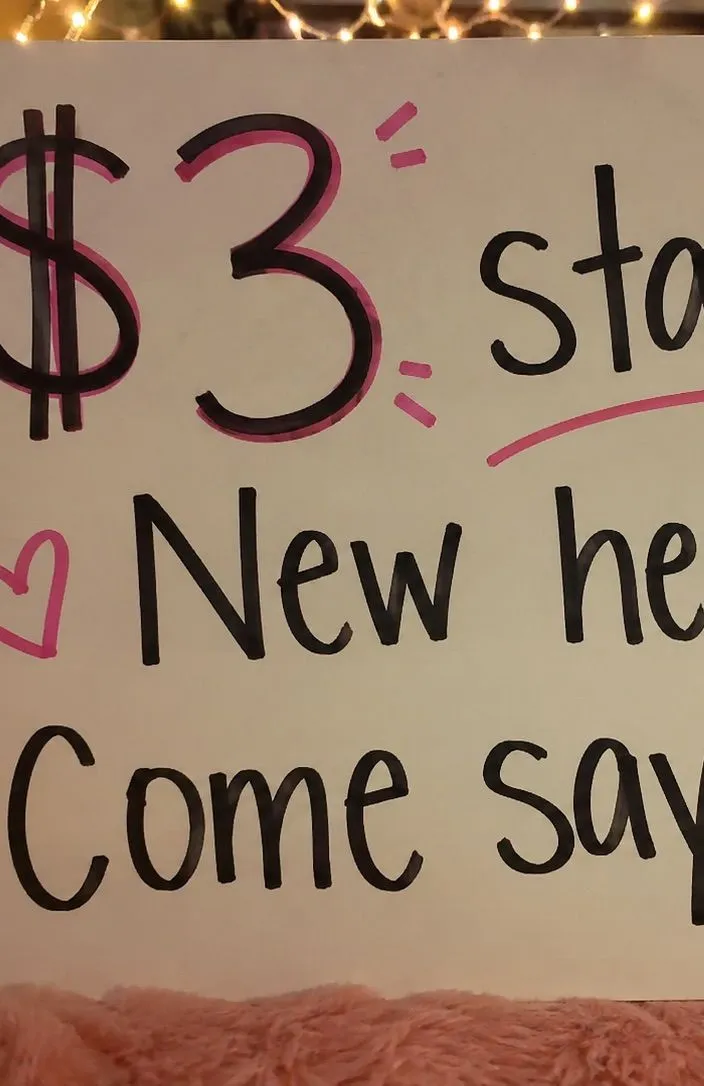 $3 sta
New he
Come say